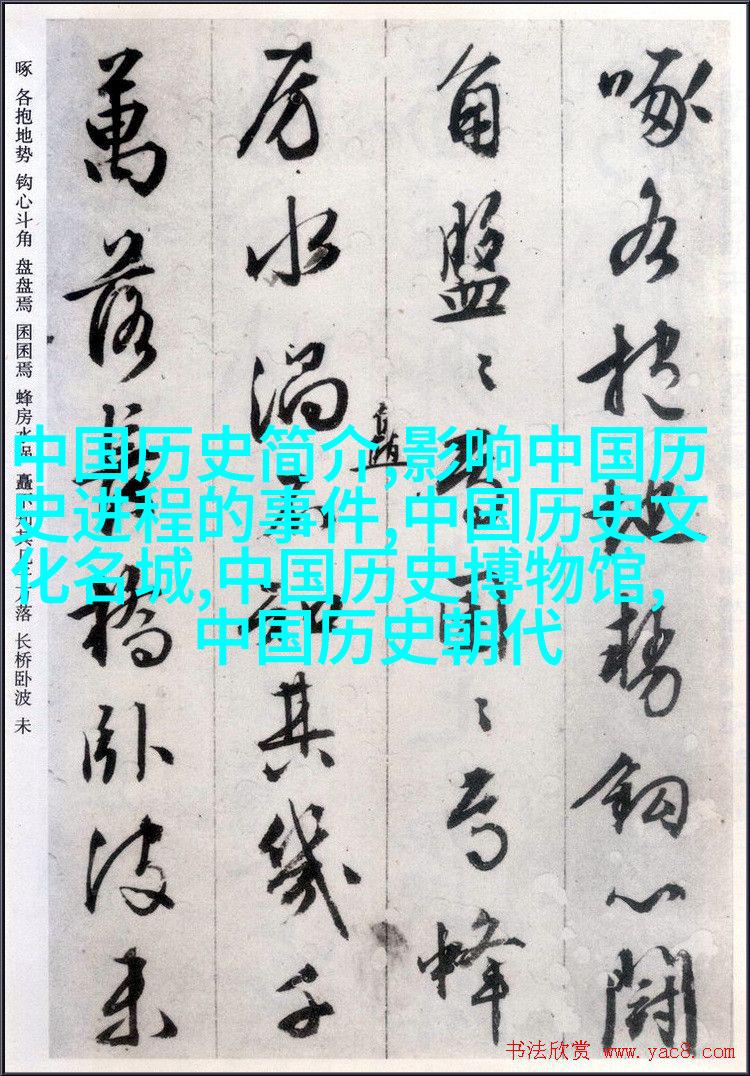 啄各抱地勢鉤心鬪
角盤〻焉囷〻焉蜂
房水渦矗不知其幾千
萬落長橋臥波未
啄 各抱地势 钩心斗角 盘盘焉 囷囷焉 蜂房水涡 矗不知其几千万落 长桥卧波 未
中国历史简介,影响中国历
史进程的事件,中国历史文
化名城,中国历史博物馆,
中国历史朝代
书法欣赏 www.yac8.com